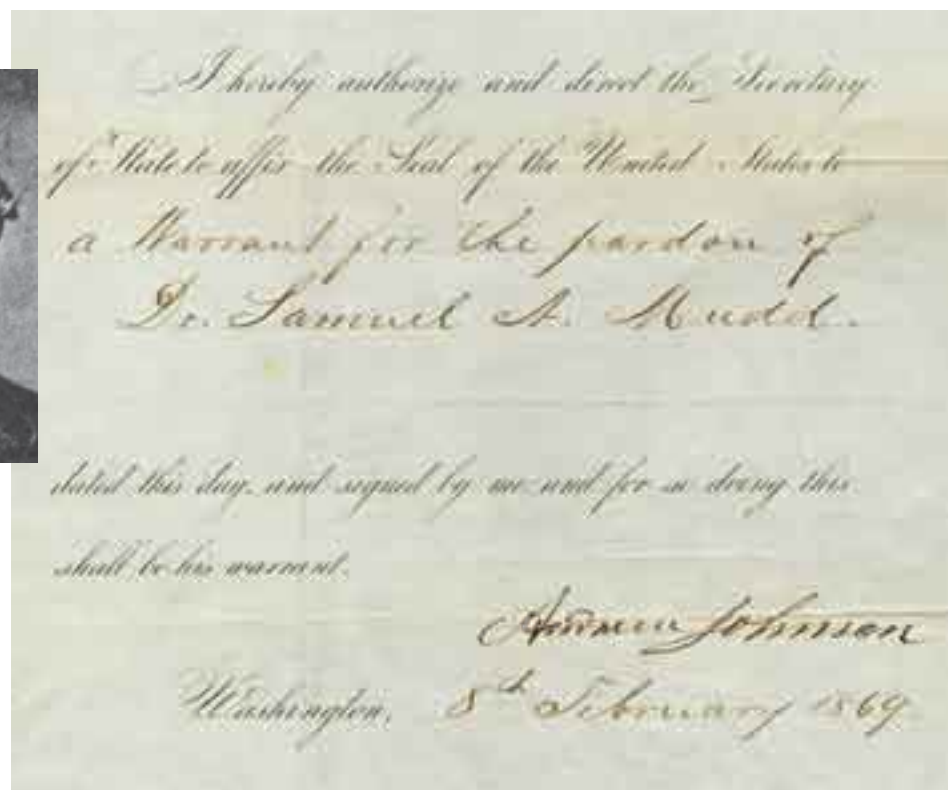 I hereby authorize and direct the Secretary
of State to affix the Seal of the United States to
a Warrant for the pardon of
Dr. Samuel A. Mudd.
dated this day, and signed by me and for so doing this
shall be his warrant.
Andrew Johnson
Washington, 8th February 1869